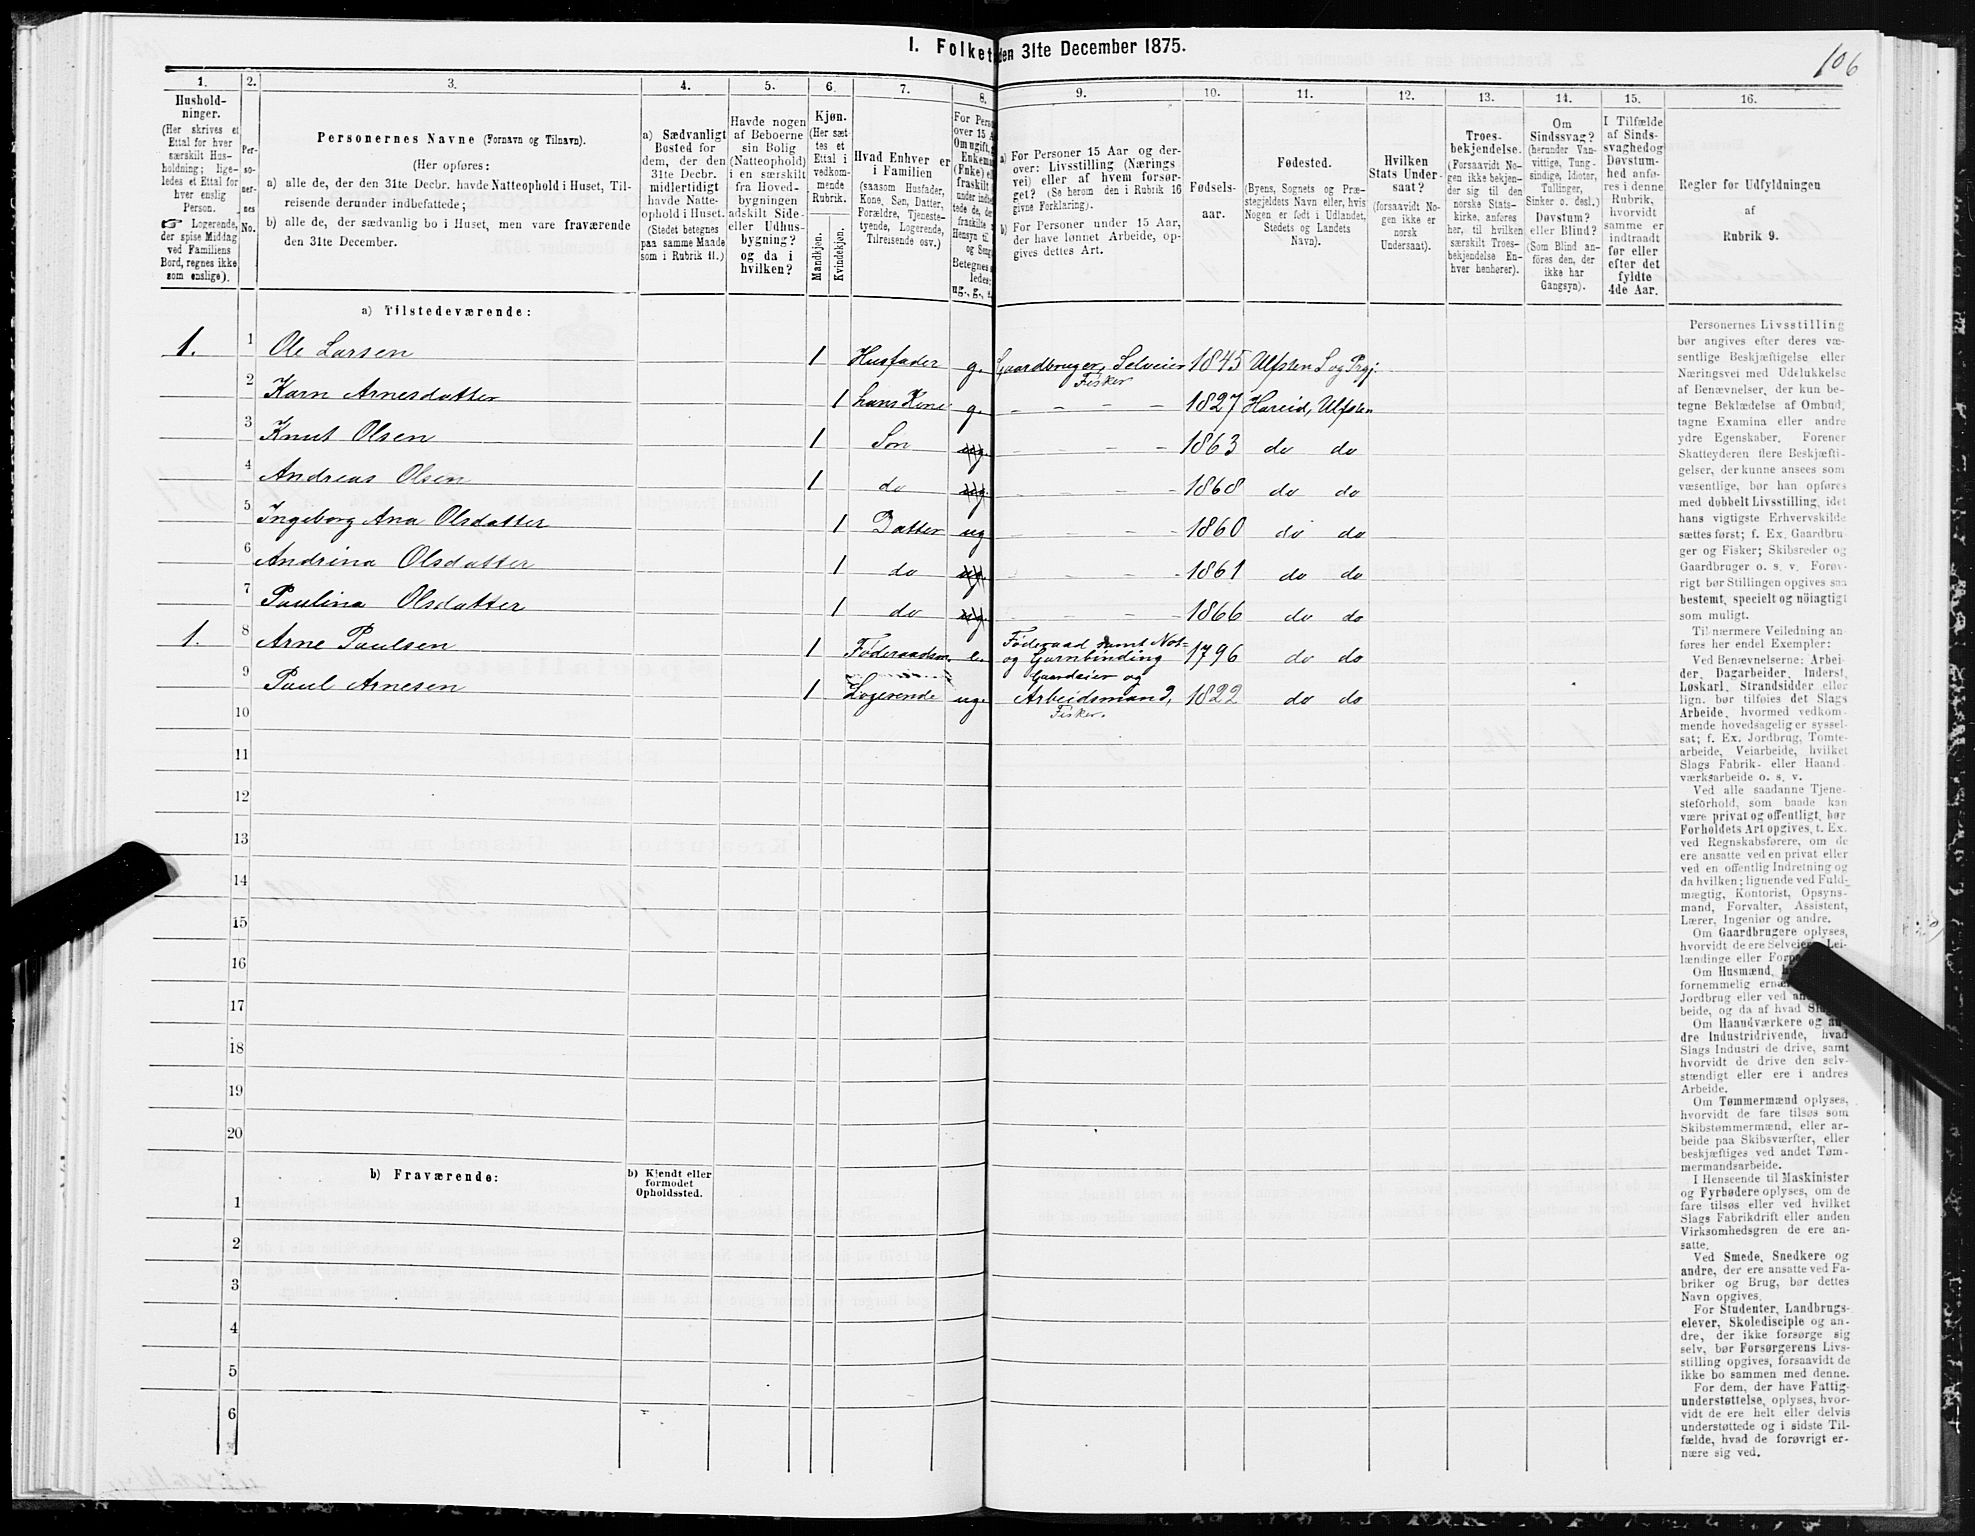 106
I. Folket
den 31te December 1875.
1. 2. 3. 4. 5. 6. 7. 8. 9. 10. 11. 12. 13. 14. 15. 16.
Hushold-
ninger.
(Her skrives et
Ettal for hver
særskilt Hus-
holdning; lige-
ledes et Ettal for
hver enslig
Person.
☞ Logerende,
der spise Middag
ved Familiens
Bord, regnes ikke
som enslige).
Per-
so-
ner-
nes
No.
Personernes Navne (Fornavn og Tilnavn).
(Her opføres:
a) alle de, der den 31te Decbr. havde Natteophold i Huset, Til-
reisende derunder indbefattede;
b) alle de, der sædvanlig bo i Huset, men vare fraværende
den 31te December.
a) Sædvanligt
Bosted for
dem, der den
31te Decbr.
midlertidigt
havde Natte-
ophold i Huset.
(Stedet betegnes
paa samme Maade
som i Rubrik 11.)
Havde nogen
af Beboerne
sin Bolig
(Natteophold)
i en særskilt
fra Hoved-
bygningen
adskilt Side-
eller Udhus-
bygning?
og da i
hvilken?
Kjøn.
(Her sæt-
tes et
Ettal i
vedkom-
mende
Rubrik.
Mandkjøn.
Kvindekjøn.
Hvad Enhver er
i Familien
(saasom Husfader,
Kone, Søn, Datter,
Forældre, Tjeneste-
tyende, Logerende,
Tilreisende osv.)
For Perso
over 15 A
Om ugift, g
Enkema
(Enke) el
fraskilt
ug., g., e.
a) For Personer 15 Aar og der-
over: Livsstilling (Nærings
vei) eller af hvem forsør-
get? (Se herom den i Rubrik 16
givne Forklaring).
b) For Personer under 15 Aar,
der have lønnet Arbeide, op-
gives dettes Art.
Fødsels-
aar.
Fødested.
(Byens, Sognets og Præ-
stegjeldets Navn eller, hvis
Nogen er født i Udlandet,
Stedets og Landets
Navn).
Hvilken
Stats Under-
saat?
(forsaavidt No-
gen ikke er
norsk
Undersaat).
Troes-
bekjendelse.
(Forsaavidt No-
gen ikke bekjen-
der sig til den
norske Stats-
kirke, anføres
her, til hvilken
særskilt Troes-
bekjendelse En-
hver henhører).
Om
Sindssvag?
(herunder Van-
vittige, Tung-
sindige, Idioter,
Tullinger,
Sinker o. desl.)
Døvstum?
eller Blind?
(Som Blind an-
føres den, der
ikke har
Gangsyn).
I Tilfælde
af Sinds-
svaghed og
Døvstum-
hed anfø-
res i denne
Rubrik,
hvorvidt
samme er
indtraadt
før eller
efter det
fyldte
4de Aar.
Regler for Udfyldningen
af
Rubrik 9.
a) Tilstedeværende:
1. 1 Ole Larsen 1 Husfader g. Gaardbruger, Selveier Fisker 1845 Ulfsten S og Prgj.
2 Karn Arnesdatter 1 hans Kone g. - - - - 1827 Hareid, Ulfsten
3 Knut Olsen 1 Søn ug. - - - - 1863 do do
4 Andreas Olsen 1 do ug. - - - - 1868 do do
5 Ingeborg Ana Olsdatter 1 Datter ug - - - - 1860 do do
6 Andrina Olsdatter 1 do ug. - - - 1861 do do
7 Paulina Olsdatter 1 do ug. - - - - 1866 do do
1. 8 Arne Paulsen 1 Føderaadsm. e. Føderaad samt Not- og Garnbinding 1796 do do
9 Paul Arnesen 1 Logerende ug. Gaardeier og Arbeidsmand, Fisker. 1822 do do
10
11
12
13
14
15
16
17
18
19
20
b) Fraværende:
b) Kjendt eller
formodet
Opholdssted.
1
2
3
4
5
6
Personernes Livsstilling
bør angives efter deres væ-
sentlige Beskjæftigelse eller
Næringsvei med Udelukkelse
af Benævnelser, der kun be-
tegne Beklædelse af Ombud,
tagne Examina eller andre
ydre Egenskaber. Forener
Skatteyderen flere Beskjæfti-
gelser, der kunne ansees som
væsentlige, bør han opføres
med dobbelt Livsstilling, idet
hans vigtigste Erhvervskilde
sættes først; f. Ex. Gaardbru-
ger og Fisker; Skibsreder og
Gaardbruger o. s. v. Forøv-
rigt bør Stillingen opgives saa
bestemt, specielt og nöiagtigt
som muligt.
Til nærmere Veiledning an-
føres her endel Exempler:
Ved Benævnelserne: Arbei-
der, Dagarbeider, Inderst,
Løskarl, Strandsidder eller
lign. bør tilføies det Slags
Arbeide, hvormed vedkom-
mende hovedsagelig er syssel-
sat; f. Ex. Jordbrug, Tomte-
arbeide, Veiarbeide, hvilket
Slags Fabrik- eller Haand-
værksarbeide o. s. v.
Ved alle saadanne Tjene-
steforhold, som baade kan
være privat og offentligt, bør
Forholdets Art opgives, t. Ex.
ved Regnskabsførere, om de
ere ansatte ved en privat eller
ved en offentlig Indretning og
da hvilken; lignende ved Fuld-
mægtig, Kontorist, Opsyns-
mand, Forvalter, Assistent,
Lærer, Ingeniør og andre.
Om Gaardbrugere oplyses,
hvorvidt de ere Selveiere, Lei-
lændinge eller
Om Husmænd,
fornemmelig
Jordbrug eller ved
beide, og da af hvad
Om Haandværkere og an-
dre Industridrivende, hvad
Slags Industri de drive, samt
hvorvidt de drive den selv-
stændigt eller ere i andres
Arbeide.
Om Tømmermænd oplyses,
hvorvidt de fare tilsøs som
Skibstømmermænd, eller ar-
beide paa Skibsværfter, eller
beskjæftiges ved andet Tøm-
mermandsarbeide.
I Henseende til Maskinister
og Fyrbødere oplyses, om de
fare tilsøs eller ved hvilket
Slags Fabrikdrift eller anden
Virksomhedsgren de ere an-
satte.
Ved Smede, Snedkere og
andre, der ere ansatte ved Fa-
briker og Brug, bør dettes
Navn opgives.
For Studenter, Landbrugs-
elever, Skoledisciple og an-
dre, der ikke forsørge sig
selv, bør Forsørgerens Livs-
stilling opgives, forsaavidt de
ikke bo sammen med denne.
For dem, der have Fattig-
understøttelse, oplyses, hvor-
vidt de ere helt eller delvis
understøttede og i sidste Til-
fælde, hvad de forøvrigt er-
nære sig ved.